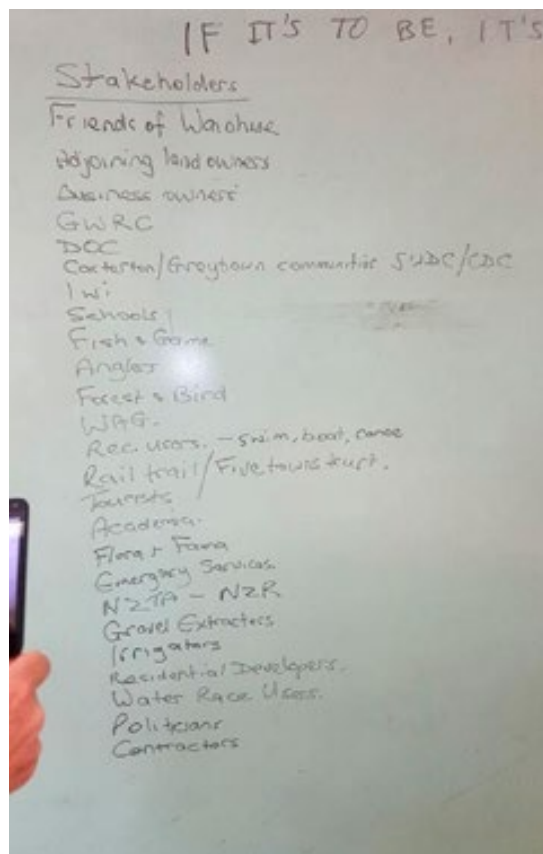 IF IT'S TO BE, IT'S
Stakeholders
Friends of
Adjoining land owners
Business owners
GWRC
DOC
Carterton/Greytown communities SWDC/CDC
Iwi
Schools
Fish & Game
Angler
Forest & Bird
WAG.
Rec. users. - swim, boat, canoe
Rail trail/Five towns trust.
Tourists
Academia.
Flora & Fauna
Emergency Services.
NZTA - NZR
Gravel Extractors
Irrigators
Residential Developers.
Water Race Users.
Politicians
Contractors